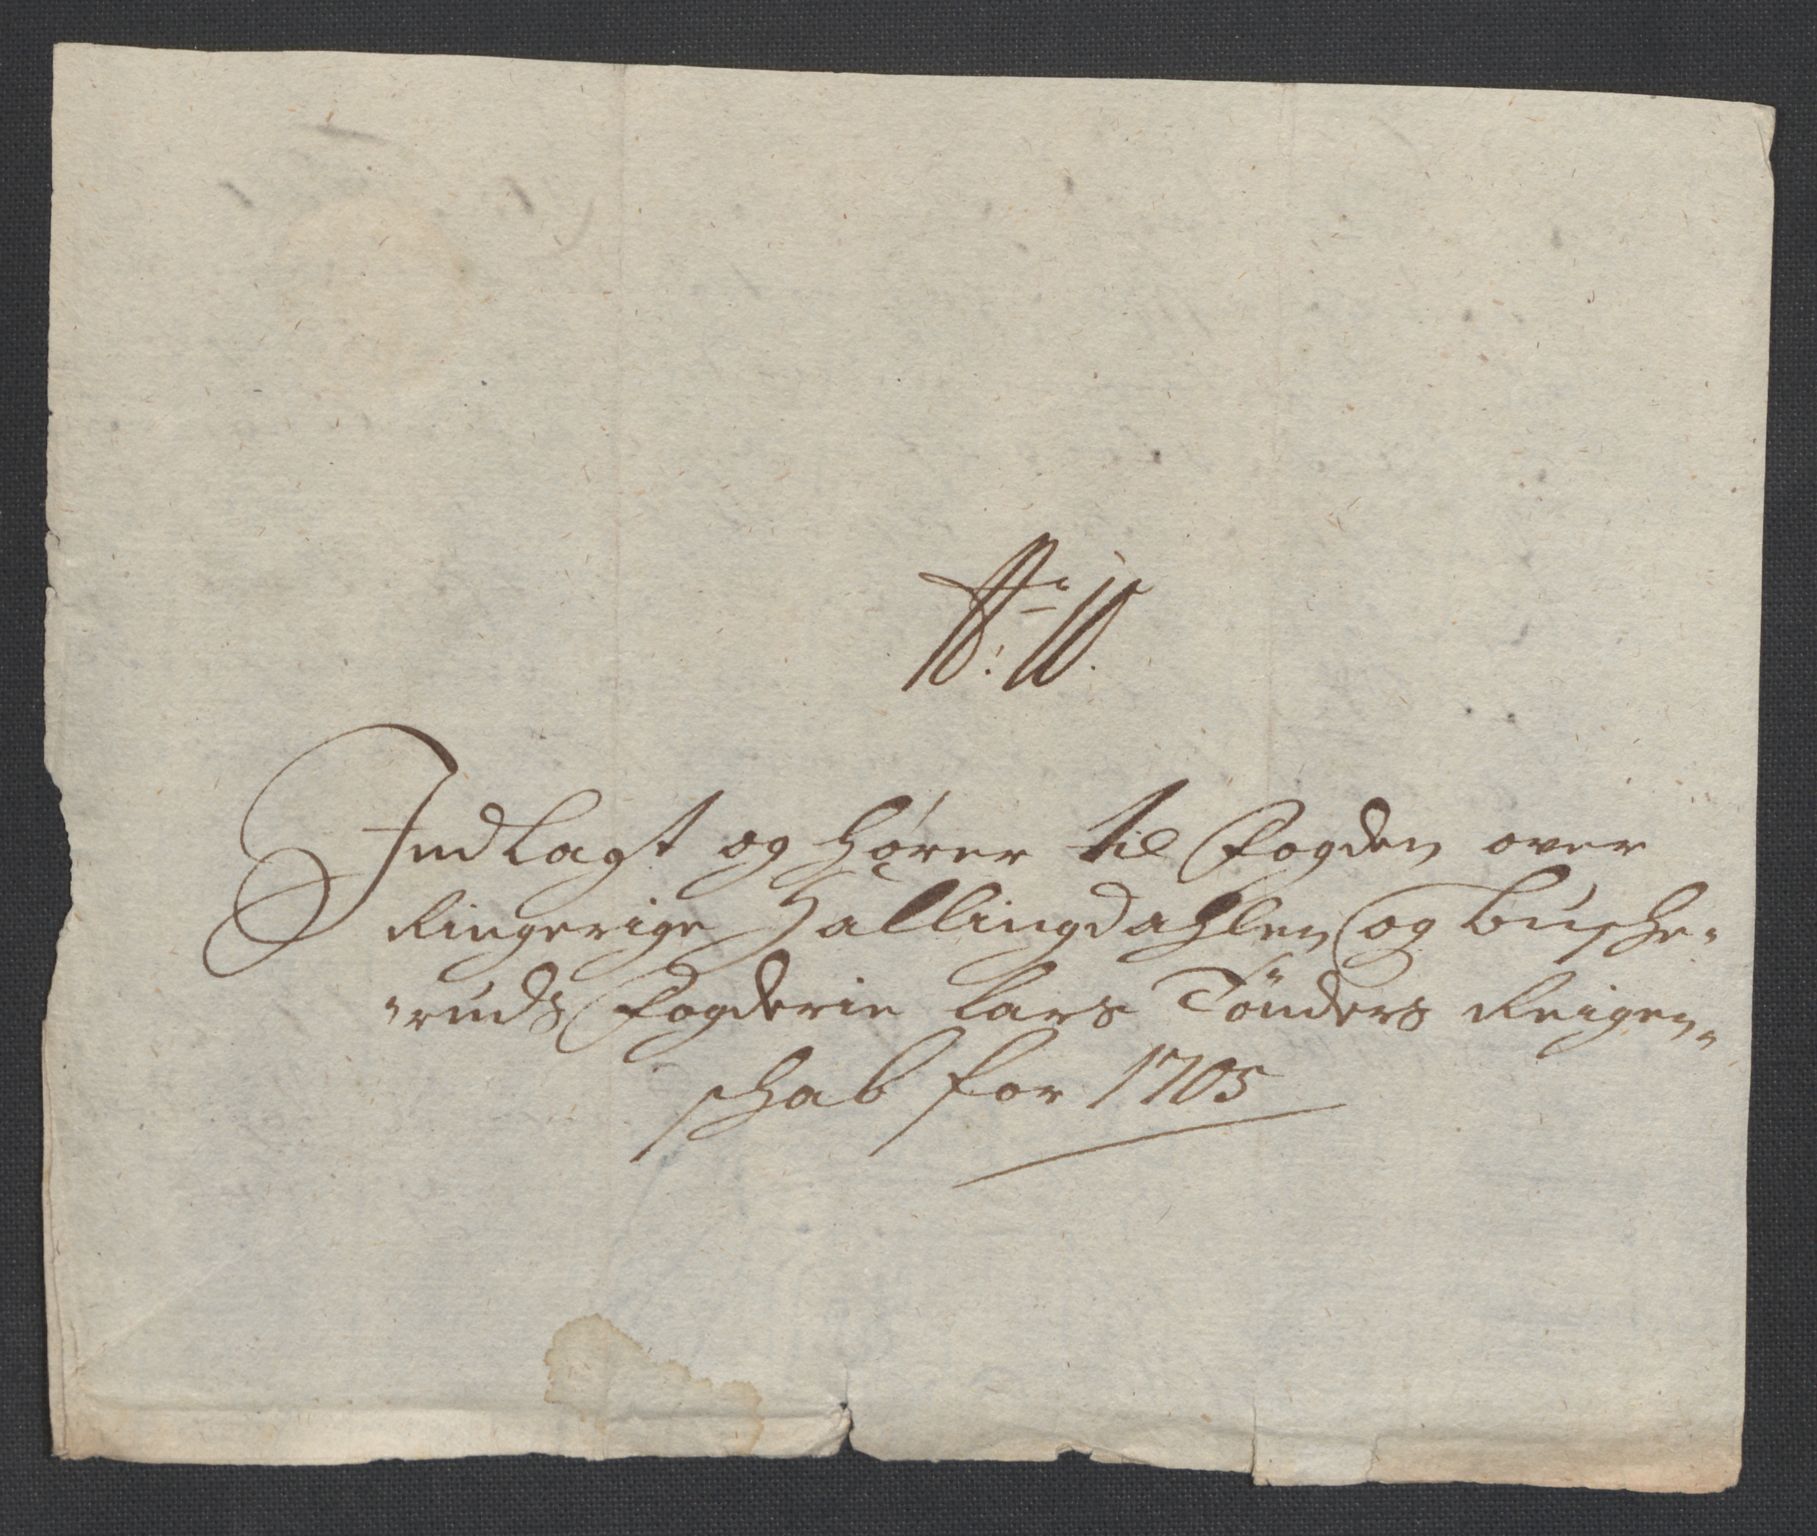 Indlagt og hører til Fogden over
Ringerige Hallingdahlen og Busche-
-ruds Fogderie Lars Tønders Reigen-
schab for 1705